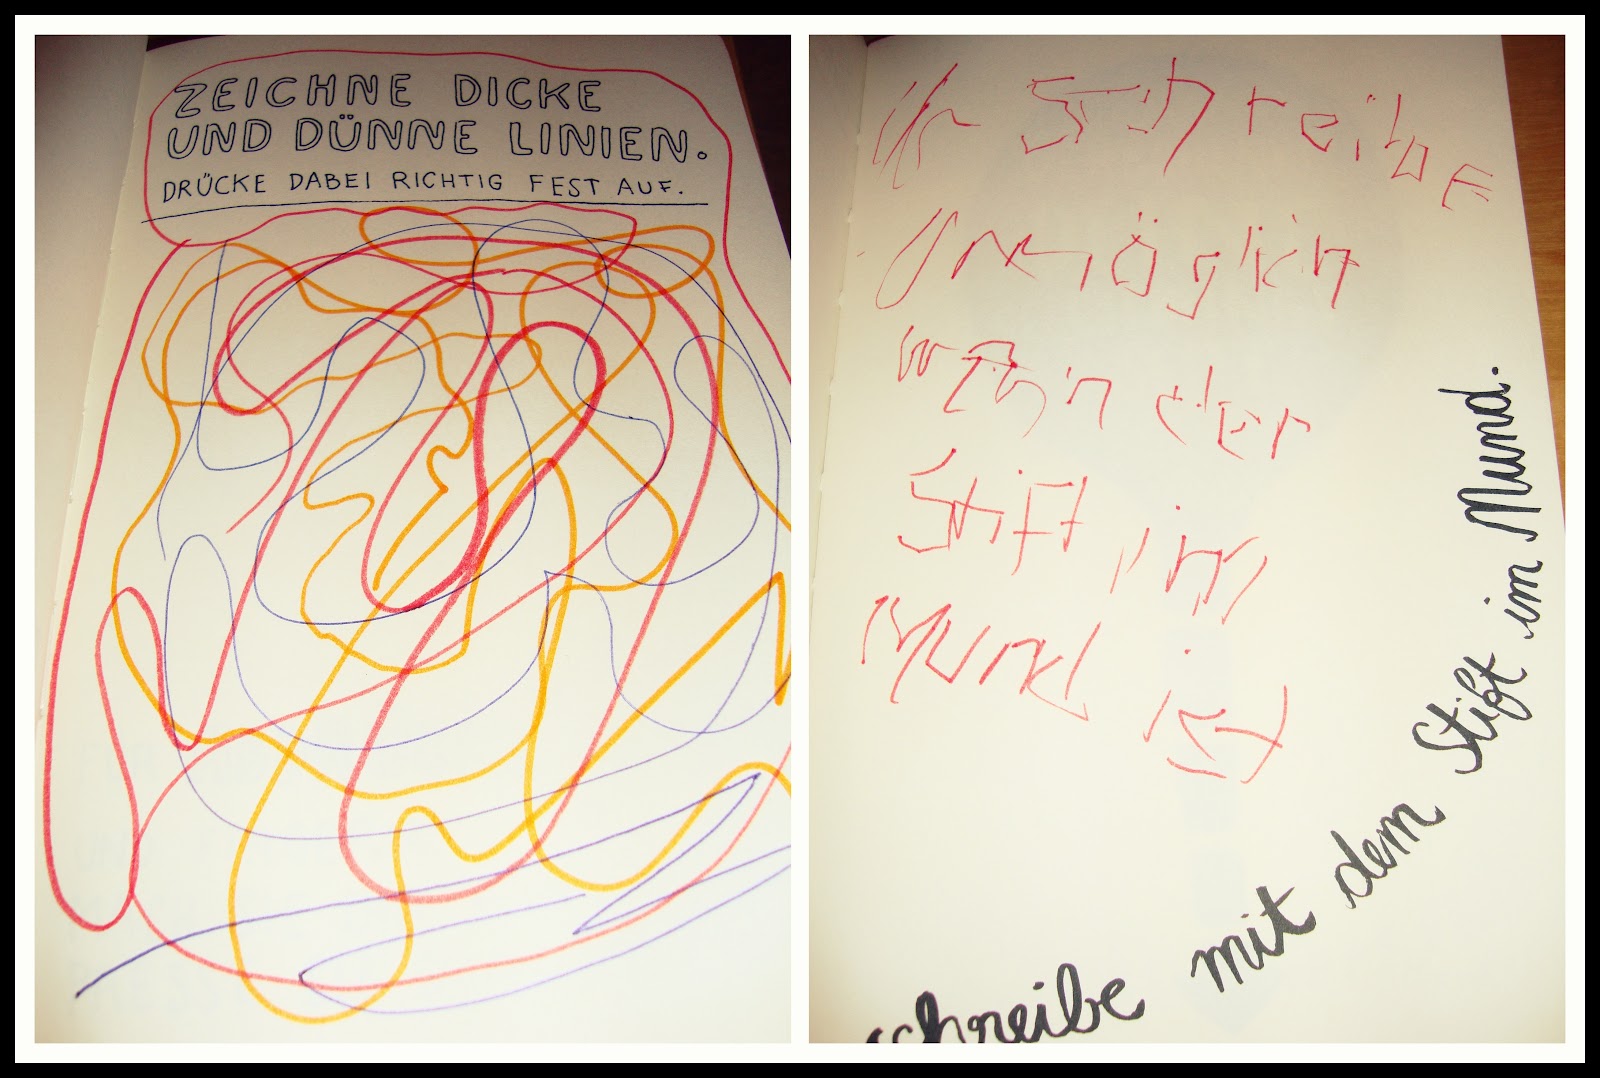 ZEICHNE DICKE
UND DÜNNE LINIEN.
DRÜCKE DABEI RICHTIG FEST AUF.
Ich Schreibe
Unmöglich
wenn der
Stift im
Mund ist
schreibe mit dem Stift im Mund.